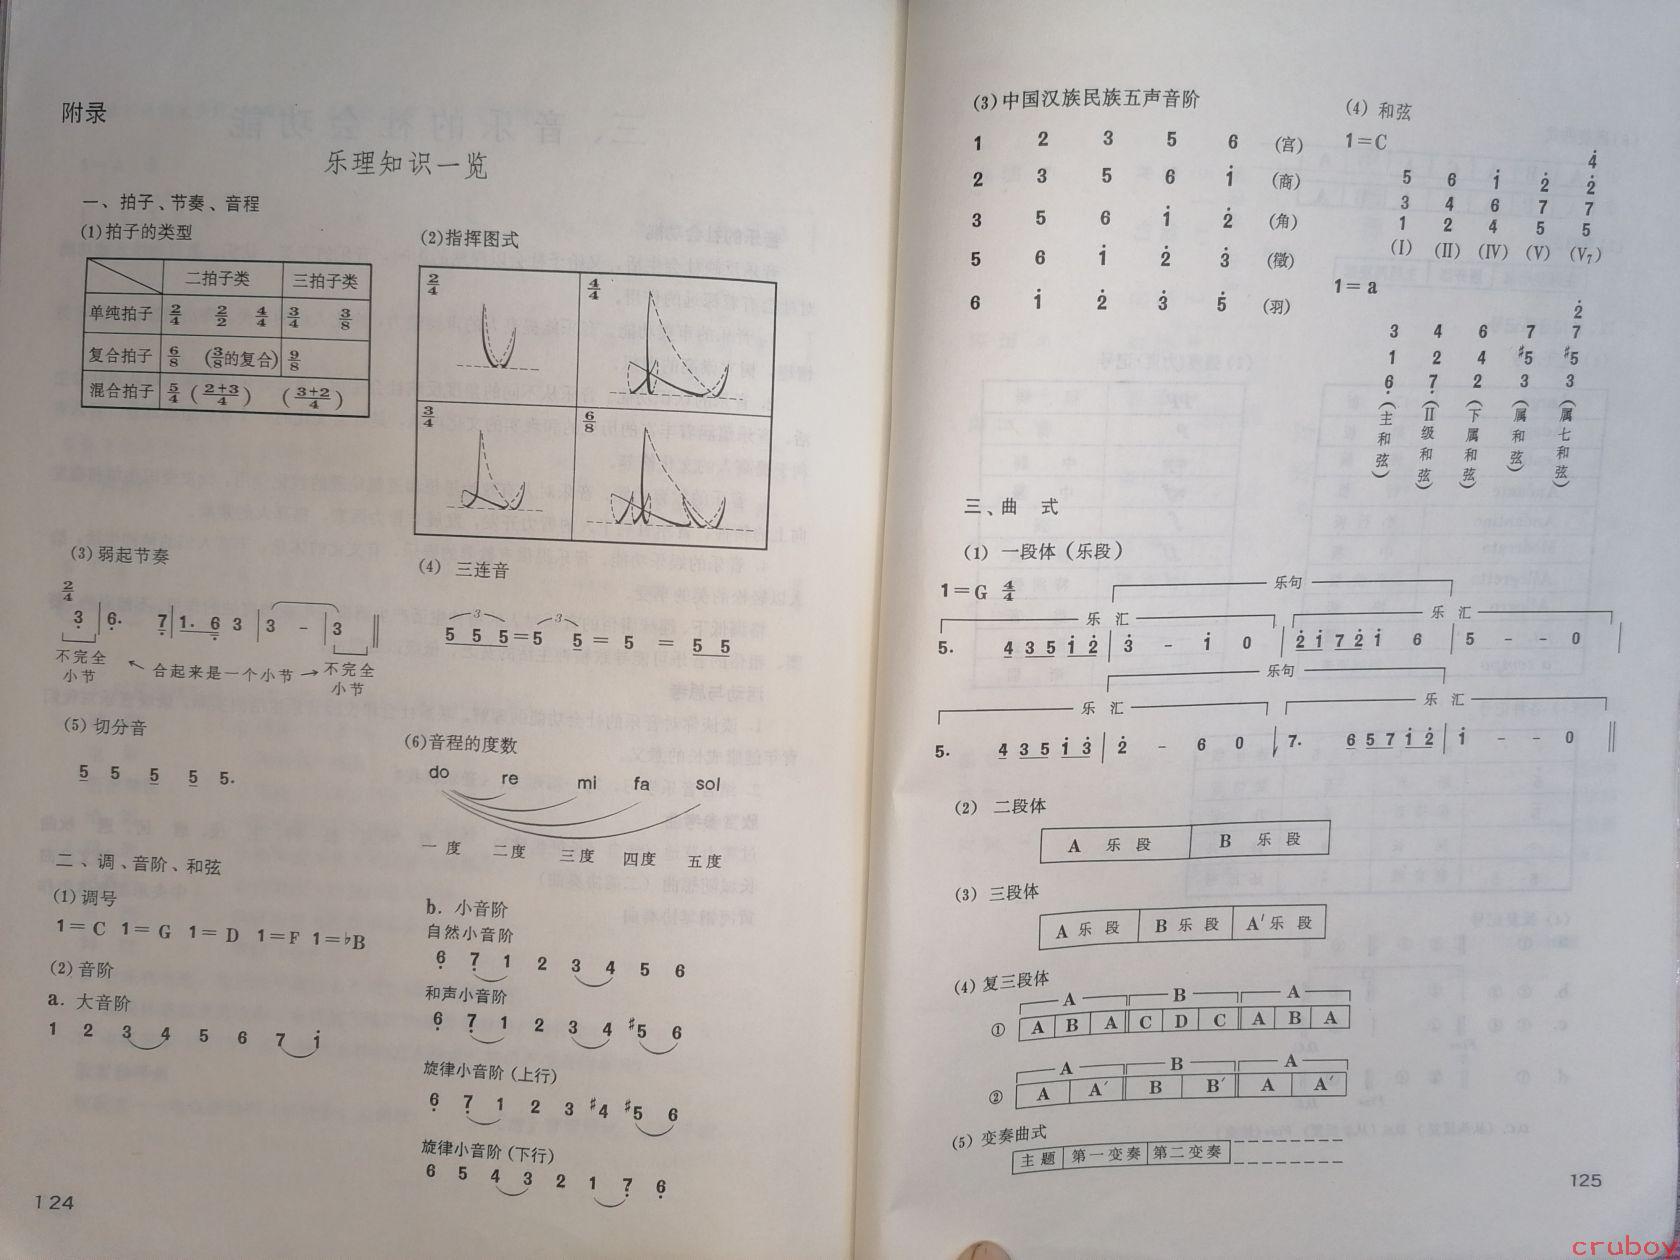 附录
乐理知识一览
一、拍子、节奏、音程
(1)拍子的类型
二拍子类 三拍子类
单纯拍子 2/4 2/2 4/4 3/4 3/8
复合拍子 6/8 (3/8的复合) 9/8
混合拍子 5/4 (2+3/4) (3+2/4)
(2)指挥图式
2/4 4/4
3/4 6/8
(3)弱起节奏
2/4
3̣ | 6̣. 7̣ | 1. 6̣ 3 | 3 – | 3 ‖
不完全小节 ↖ 合起来是一个小节 → 不完全小节
(4) 三连音
3 3
5 5 5 = 5 5 = 5 = 5 5
(5)切分音
5 5 5 5 5.
(6)音程的度数
do re mi fa sol
一度 二度 三度 四度 五度
二、调、音阶、和弦
(1)调号
1=C 1=G 1=D 1=F 1=♭B
(2)音阶
a. 大音阶
1 2 3 4 5 6 7 1̇
b. 小音阶
自然小音阶
6̣ 7̣ 1 2 3 4 5 6
和声小音阶
6̣ 7̣ 1 2 3 4 ♯5 6
旋律小音阶(上行)
6̣ 7̣ 1 2 3 ♯4 ♯5 6
旋律小音阶(下行)
6 5 4 3 2 1 7̣ 6̣
124
(3)中国汉族民族五声音阶
1 2 3 5 6 (宫)
2 3 5 6 1̇ (商)
3 5 6 1̇ 2̇ (角)
5 6 1̇ 2̇ 3̇ (徵)
6 1̇ 2̇ 3̇ 5̇ (羽)
(4) 和弦
1=C
4̇
5 6 1̇ 2̇ 2̇
3 4 6 7 7
1 2 4 5 5
(Ⅰ) (Ⅱ) (Ⅳ) (Ⅴ) (Ⅴ7)
1=a
2̇
3 4 6 7 7
1 2 4 ♯5 ♯5
6̣ 7̣ 2 3 3
(主和弦) (Ⅱ级和弦) (下属和弦) (属和弦) (属七和弦)
三、曲 式
(1) 一段体(乐段)
乐句
1=G 4/4
乐 汇 乐 汇
5. 4 3 5 1̇ 2̇ | 3̇ – 1̇ 0 | 2̇ 1̇ 7 2̇ 1̇ 6 | 5 – – 0 |
乐句
乐 汇 乐 汇
5. 4 3 5 1̇ 3̇ | 2̇ – 6 0 | 7. 6 5 7 1̇ 2̇ | 1̇ – – 0 ‖
(2) 二段体
A 乐 段 B 乐 段
(3) 三段体
A 乐 段 B 乐 段 A′ 乐 段
(4)复三段体
A B A
① A B A C D C A B A
A B A
② A A′ B B′ A A′
(5)变奏曲式
主题 第一变奏 第二变奏
125
cruboy